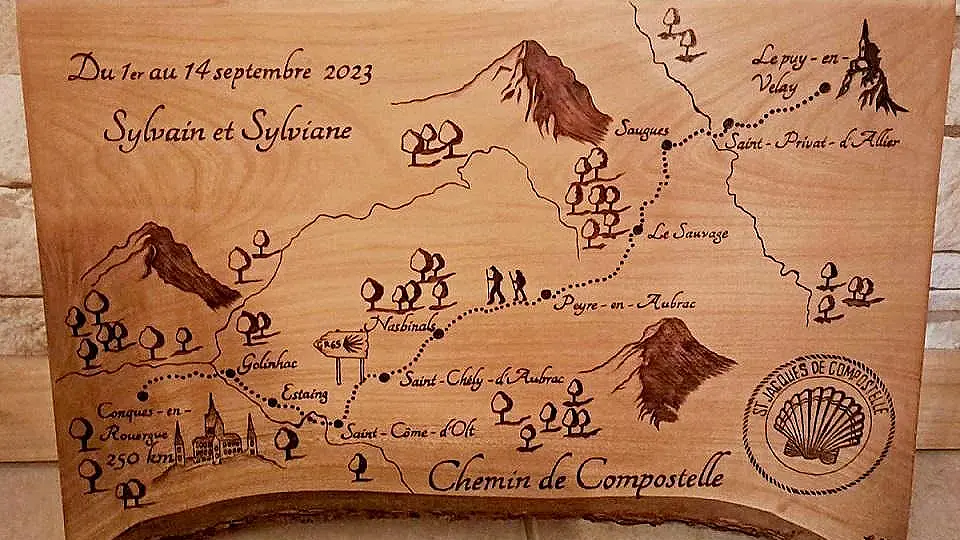 Du 1er au 14 septembre 2023
Sylvain et Sylviane
Le puy-en-
Velay
Saint-Privat-d'Allier
Saugues
Le Sauvage
Peyre-en-Aubrac
Nasbinals
GR65
Saint-Chély-d'Aubrac
Golinhac
Estaing
Saint-Côme-d'Olt
Conques-en-
Rouergue
250 km
ST JACQUES DE COMPOSTELLE
Chemin de Compostelle